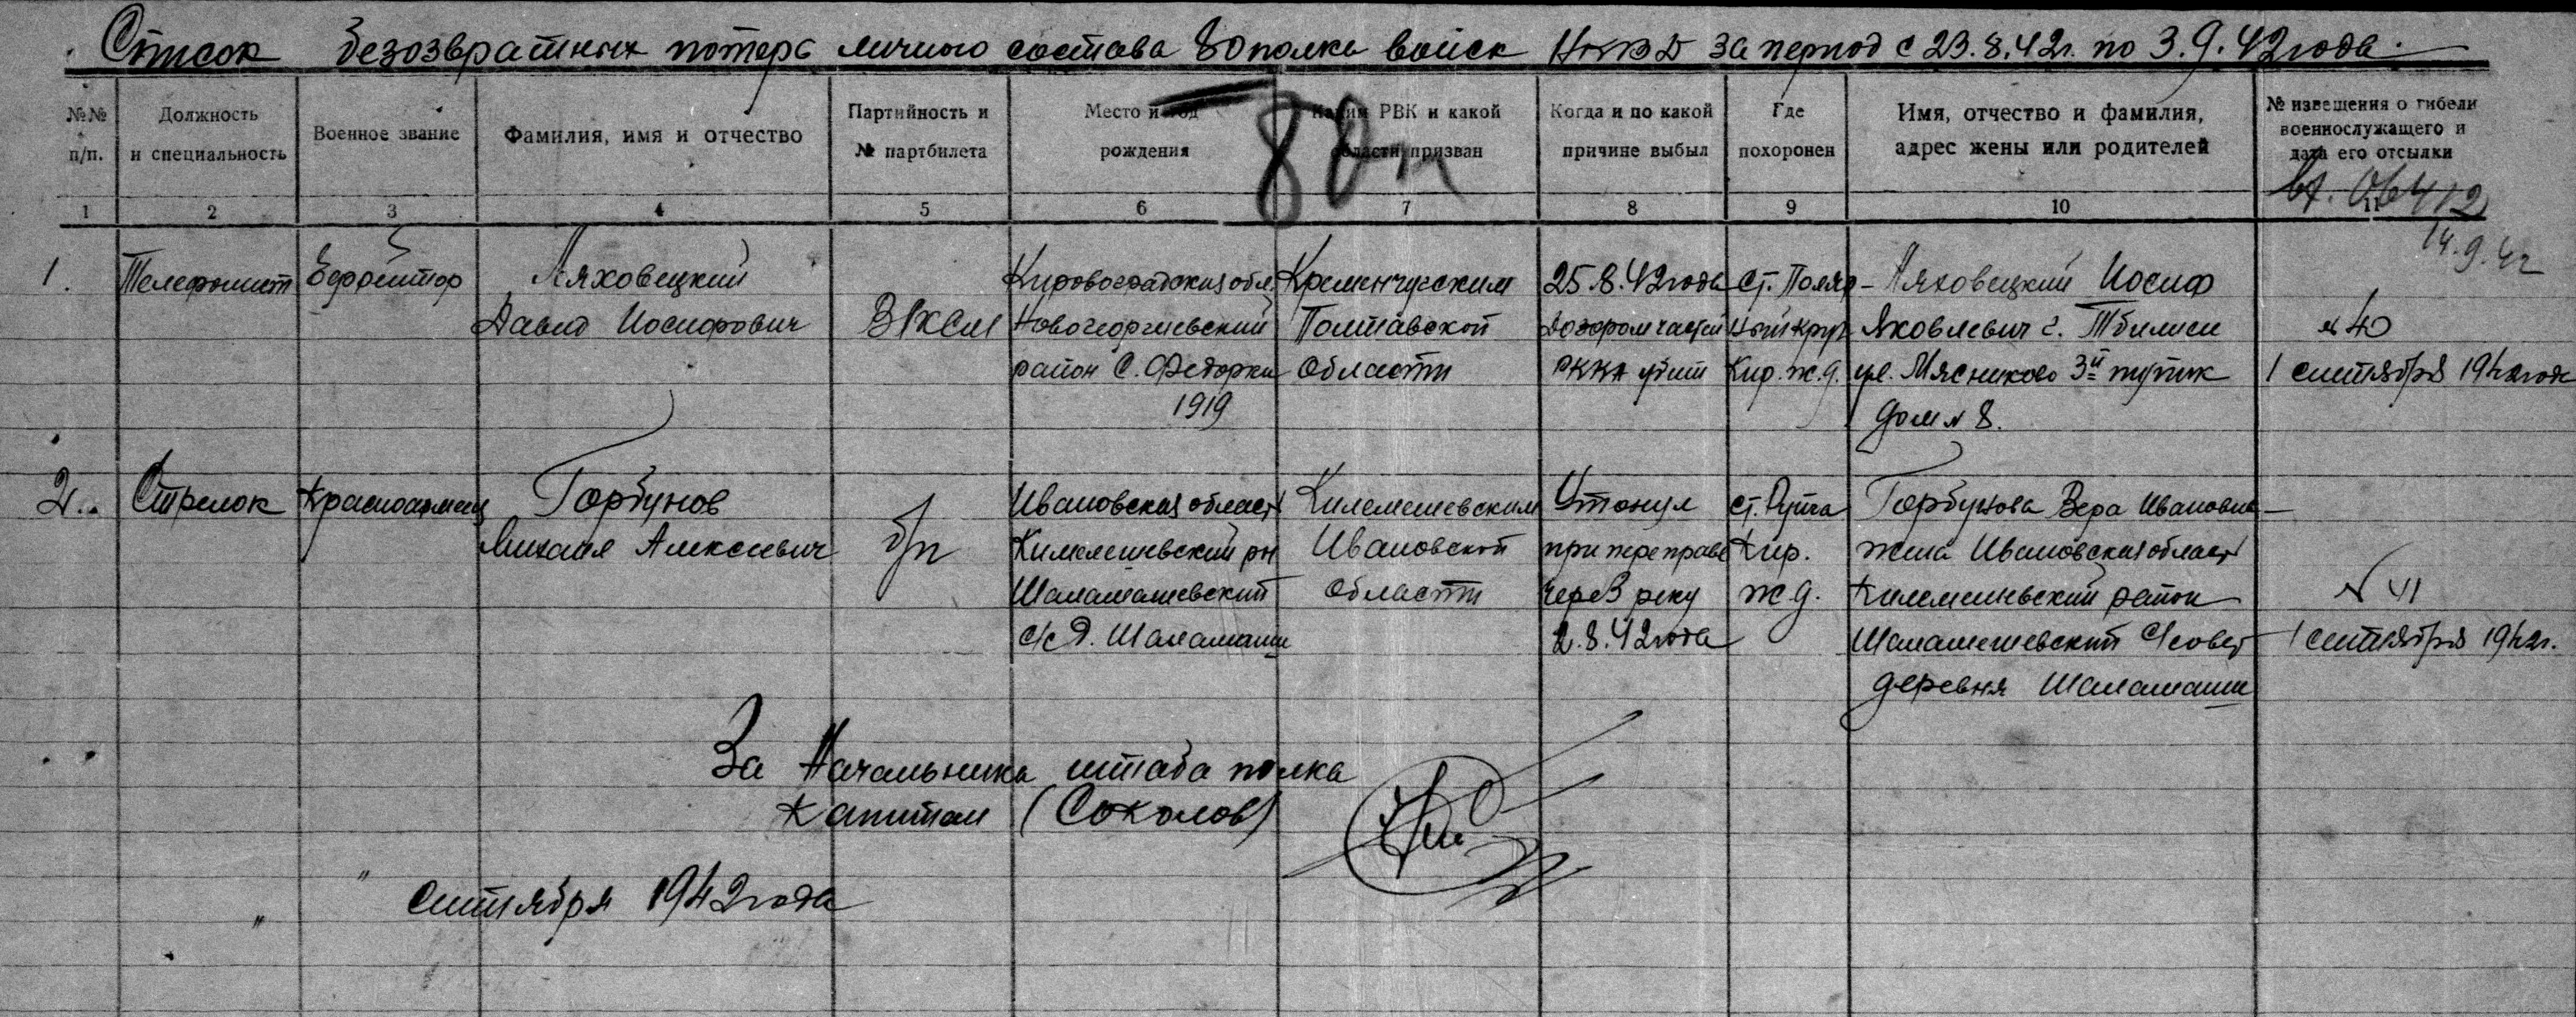 Список безозвратных потерь личного состава 80 полка войск НКВД за период с 23.8.42г. по 3.9.42 года.
№№ п/п.
Должность и специальность
Военное звание
Фамилия, имя и отчество
Партийность и № партбилета
Место и год рождения
Каким РВК и какой области призван
Когда и по какой причине выбыл
Где похоронен
Имя, отчество и фамилия, адрес жены или родителей
№ извещения о гибели военнослужащего и дата его отсылки
80п
1 2 3 4 5 6 7 8 9 10 11
14.9.42
1.
Телефонист
Ефрейтор
Ляховецкий
Давид Иосифович
ВЛКСМ
Кировоградская обл.
Новогеоргиевский
район С. Федорки
1919
Кременчугским
Полтавской
области
25.8.42 года
дозором частей
РККА убит
ст. Поляр-
ный круг
Кир. ж.д.
Ляховецкий Иосиф
Яковлевич г. Тбилиси
ул. Мясниково 3й тупик
дом № 8.
№ 40
1 сентября 1942 года
2.
Стрелок
Красноармеец
Горбунов
Михаил Алексеевич
б/п
Ивановская область
с/с д.
Ивановской
области
Утонул
при переправе
через реку
2.8.42 года
ст.
Кир.
ж.д.
Горбунова Вера Ивановна-
жена Ивановская область
район
деревня
№ 41
1 сентября 1942г.
За Начальника штаба полка
капитан (Соколов)
" " сентября 1942 года